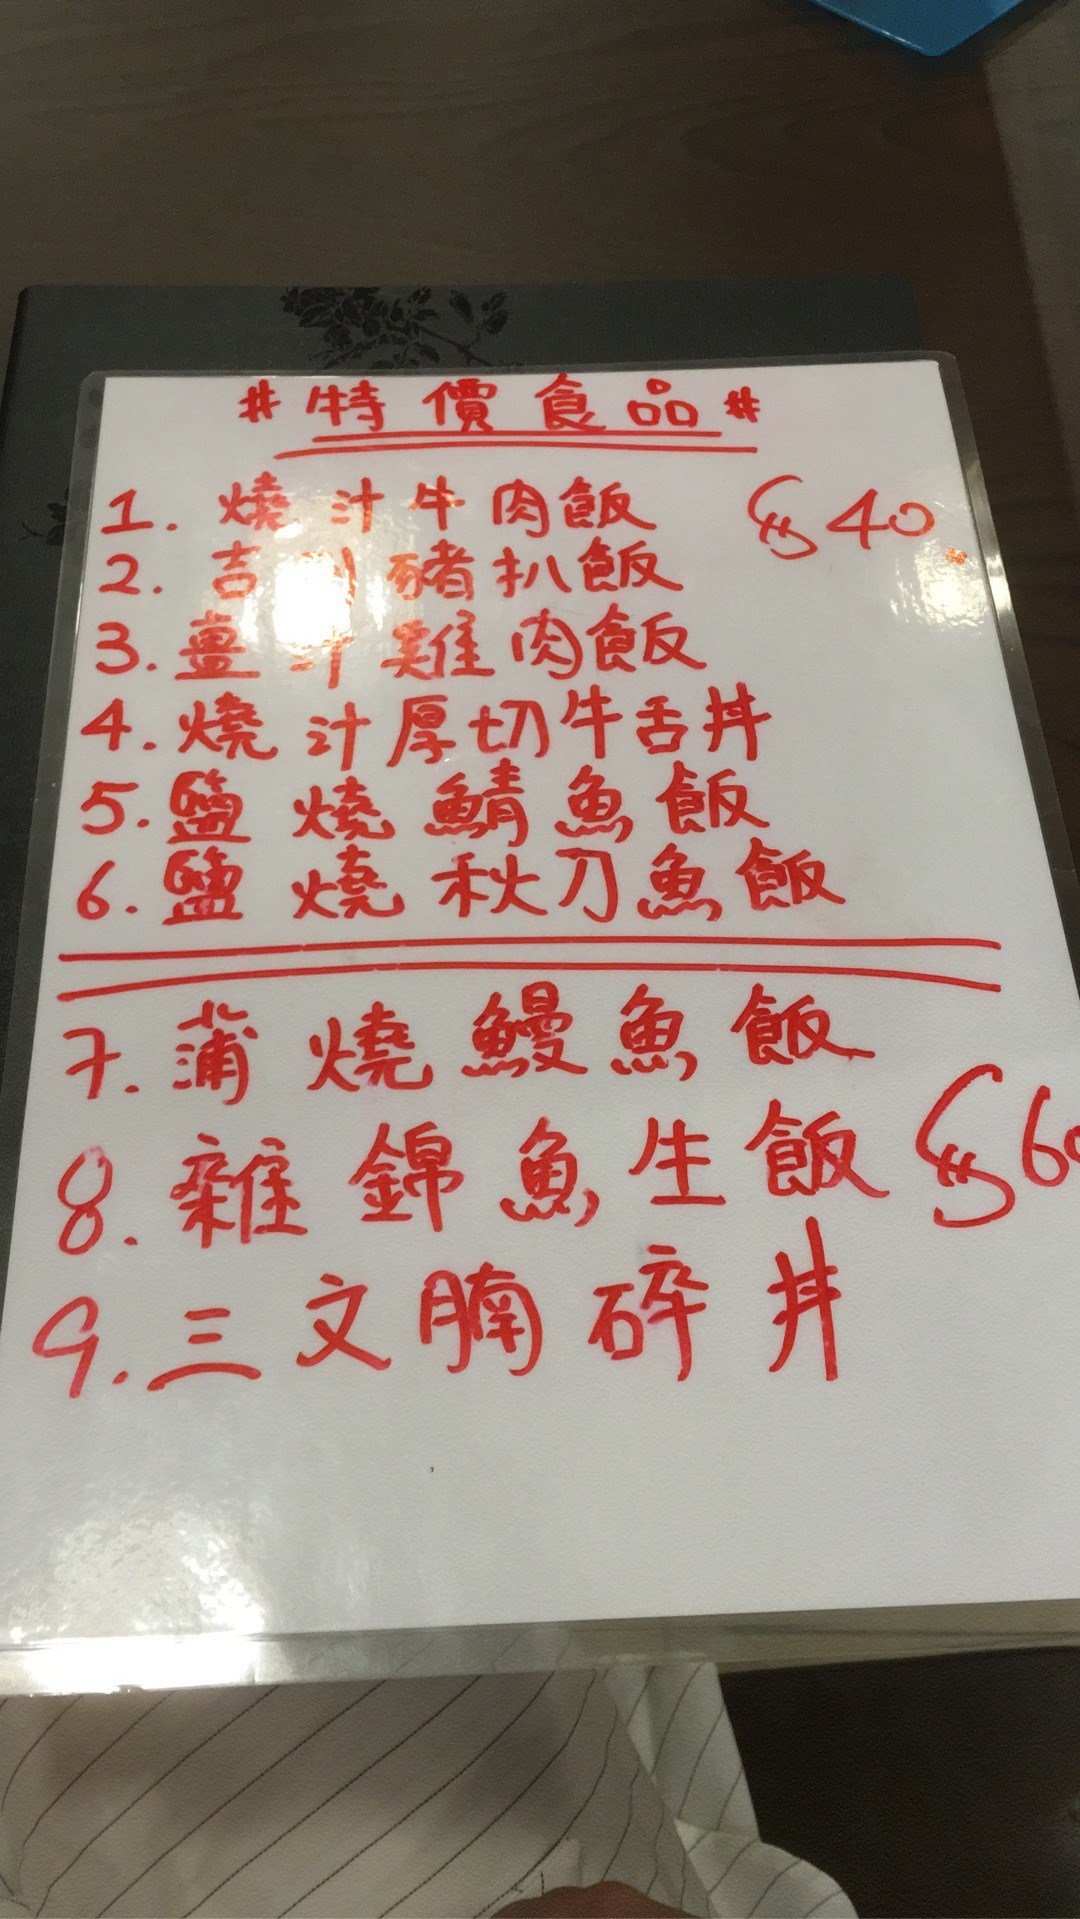 #特價食品#
1. 燒汁牛肉飯 $40
2. 吉列豬扒飯
3. 薑汁雞肉飯
4. 燒汁厚切牛舌丼
5. 鹽燒鯖魚飯
6. 鹽燒秋刀魚飯
7. 蒲燒鰻魚飯
8. 雜錦魚生飯 $60
9. 三文腩碎丼